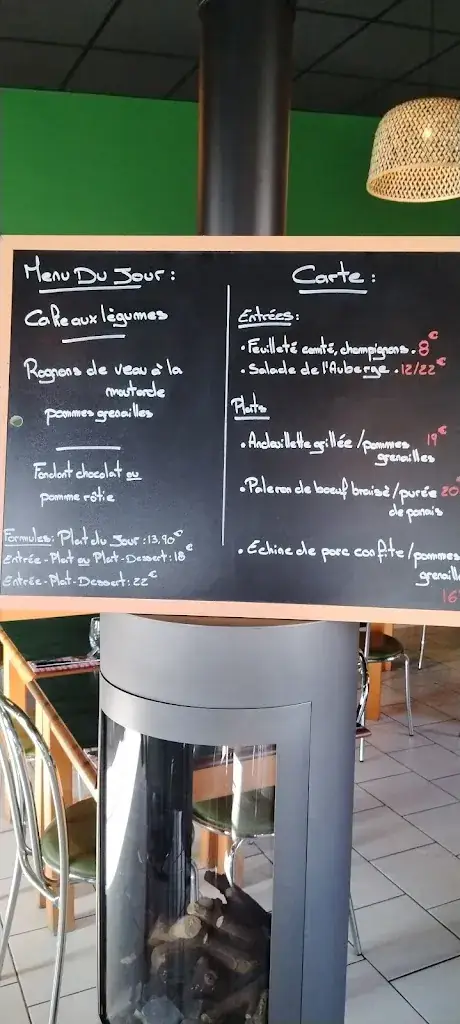 Menu Du Jour :
Cake aux légumes
Rognons de veau à la
moutarde
pommes grenailles
Fondant chocolat ou
pomme rôtie
Formules: Plat du Jour : 13,90€
Entrée-Plat ou Plat-Dessert : 18€
Entrée-Plat-Dessert : 22€
Carte :
Entrées :
• Feuilleté comté, champignons . 8€
• Salade de l'Auberge . 12/22€
Plats
• Andouillette grillée / pommes 19€
grenailles
• Paleron de boeuf braisé / purée 20
de panais
• Echine de porc confite / pommes
grenaill
16